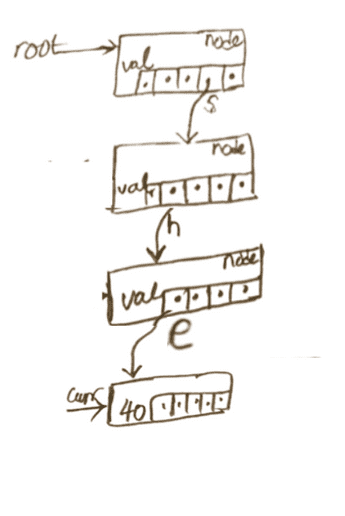 root
node
val
s
node
val
h
node
val
e
curr
40